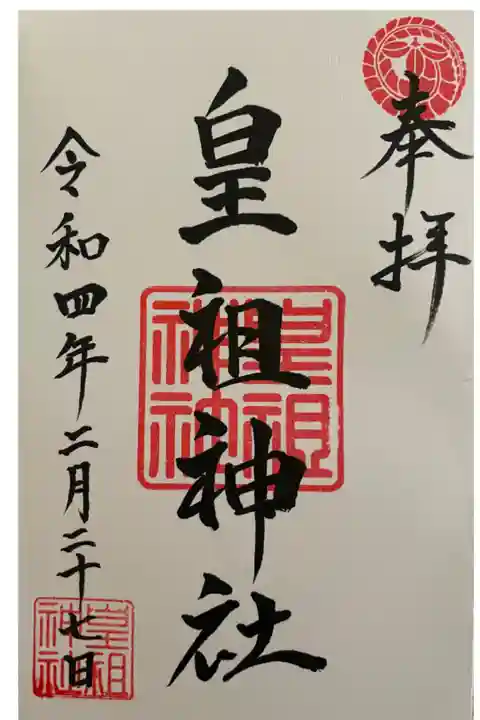 奉拝
皇祖神社
皇祖
神社
令和四年二月二十七日
皇祖
神社